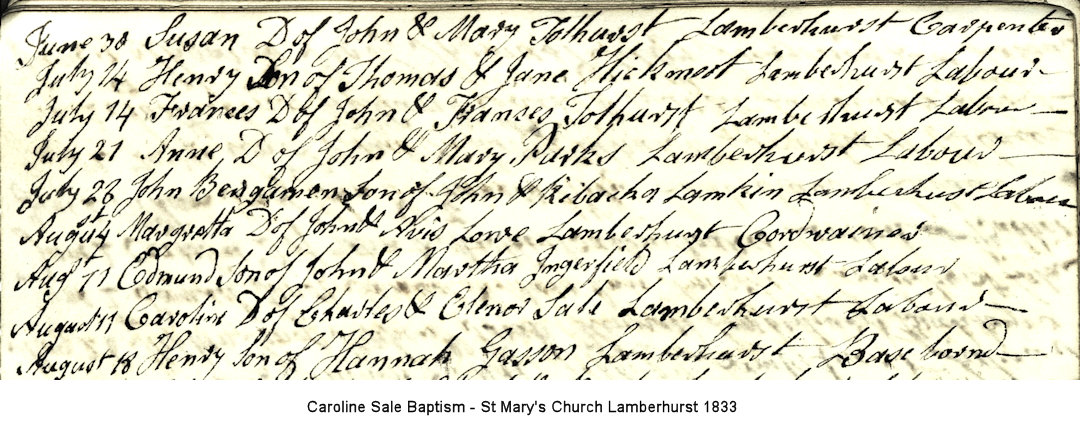 June 30 Susan D of John & Mary Tolhurst Lamberhurst Carpenter
July 14 Henry Son of Thomas & Jane Hickmott Lamberhurst Labour
July 14 Frances D of John & Franses Tolhurst Lamberhurst Labour
July 21 Anne D of John & Mary Parks Lamberhurst Labour
July 28 John Bengamen Son of John & Ribacka Lamkin Lamberhurst Labour
August 4 Margretta D of John & Avis Lowe Lamberhurst Cordwainer
Augst 11 Edmund Son of John & Martha Ingerfield Lamberhurst Labour
August 11 Caroline D of Charles & Elenor Sale Lamberhurst Labour
August 18 Henry Son of Hannah Gasson Lamberhurst Base bornd
Caroline Sale Baptism - St Mary's Church Lamberhurst 1833